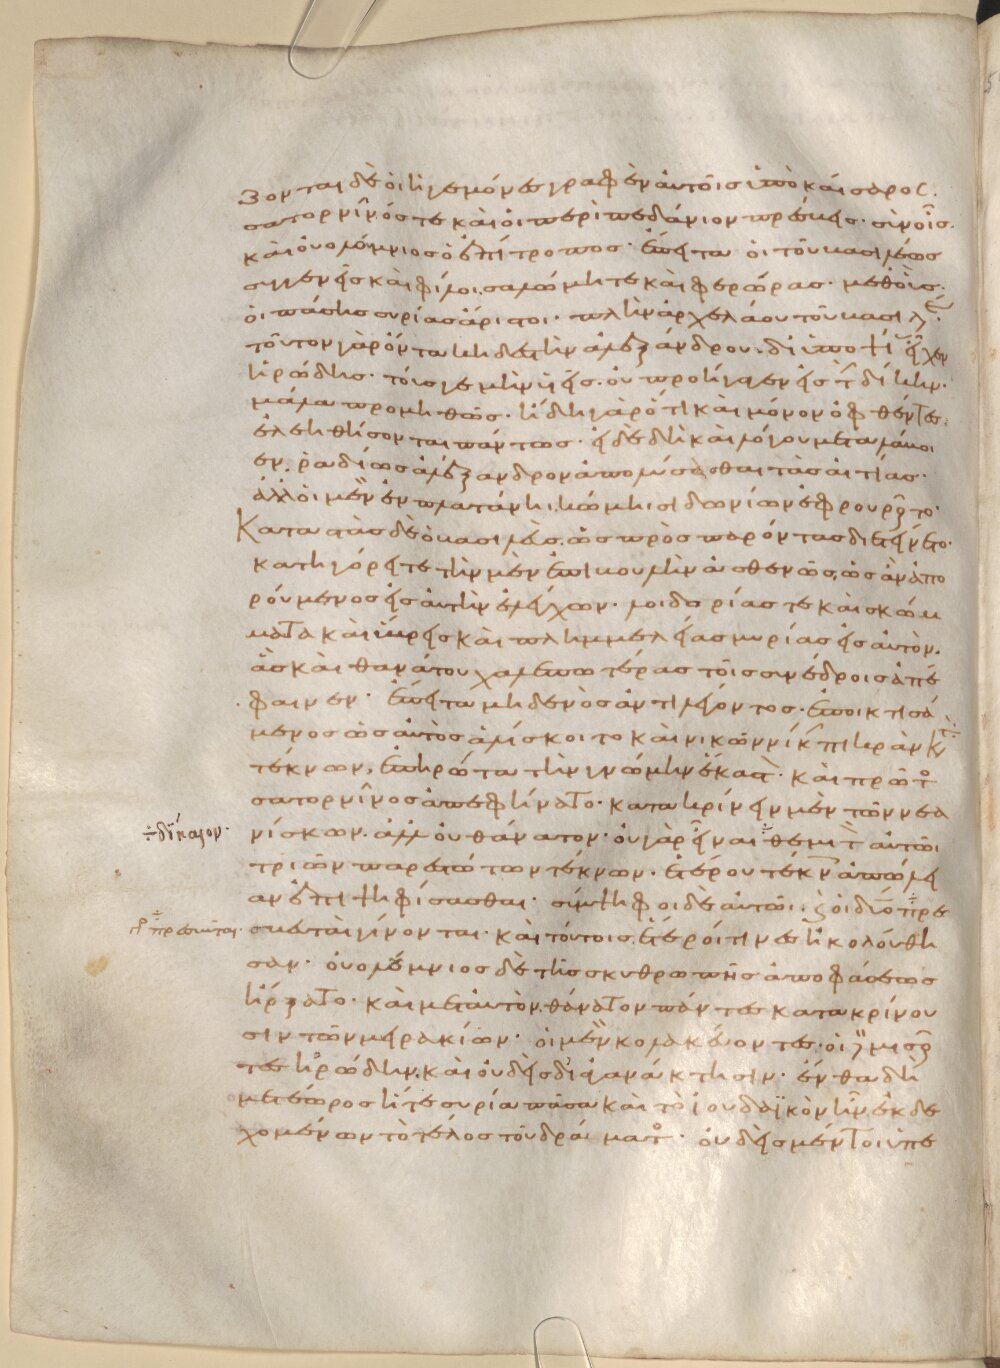 ζονται δὲ οἱ ἡγεμόνες γραφὲν αὐτοῖς ὑπὸ καίσαρος.
σατορνῖνός τε καὶ οἱ περὶ πεδάνιον πρέσβεις· σὺν οἷς·
καὶ οὐολόμνιος ὁ ἐπίτροπος· ἔπειτα οἱ τοῦ βασιλέως
συγγενεῖς καὶ φίλοι. σαλώμη τε καὶ φερώρας· μεθ οὓς·
οἱ πάσης συρίας ἄριστοι· πλὴν ἀρχελάου τοῦ βασιλέως·
τοῦτον γὰρ ὄντα κηδεστὴν ἀλεξάνδρου. δι ὑποψίας εἶχεν
ἡρώδης· τούς γε μὴν υἱεῖς· οὐ προήγαγεν εἰς τὴν δίκην·
μάλα προμηθῶς· ἤδει γὰρ ὅτι καὶ μόνον ὀφθέντες·
ἐλεηθήσονται πάντως· εἰ δὲ δὴ καὶ λόγου μεταλάβοι
εν. ῥαδίως ἀλέξανδρον ἀπολύσεσθαι τὰς αἰτίας·
ἀλλ οἱ μὲν ἐν πλατάνηι κώμηι σιδωνίων ἐφρουροῦντο·
Καταστὰς δὲ ὁ βασιλεὺς. ὡς πρὸς παρόντας διετείνετο·
κατηγόρει τε τὴν μὲν ἐπιβουλὴν ἀσθενῶς, ὡς ἂν ἀπο
ρούμενος εἰς αὐτὴν ἐλέγχων· λοιδορίας τε καὶ σκώμ
ματα καὶ ὕβρεις καὶ πλημμελείας μυρίας εἰς αὐτὸν.
ἃς καὶ θανάτου χαλεπωτέρας τοῖς συνέδροις ἀπέ
φαινεν· ἔπειτα μηδενὸς ἀντιλέγοντος· ἐποικτισά
μενος ὡς αὐτὸς ἁλίσκοιτο καὶ νικῶν νίκην πικρὰν κατὰ
τέκνων, ἐπηρώτα τὴν γνώμην ἑκάστου· καὶ πρῶτος
σατορνῖνος ἀπεφήνατο· κατακρίνειν μὲν τῶν νεα
νίσκων. ἀλλ οὐ θάνατον· οὐ γὰρ εἶναι θεμιτὸν αὐτῶι
÷δίκαιον·
τριῶν παρεστώτων τέκνων· ἑτέρου τέκνων ἀπώλει
αν ἐπιψηφίσασθαι· σύμψηφοι δὲ αὐτῶι. καὶ οἱ δύο πρε
πρεσβευταὶ·
σβευταὶ γίνονται· καὶ τούτοις ἕτεροί τινες ἠκολούθη
σαν· οὐολόμνιος δὲ τῆς σκυθρωπῆς ἀποφάσεως
ἤρξατο· καὶ μετ αὐτὸν. θάνατον πάντες κατακρίνου
σιν τῶν μειρακίων· οἱ μὲν κολακεύοντες· οἱ δὲ μισοῦν
τες ἡρώδην. καὶ οὐδεὶς δι ἀγανάκτησιν· ἔνθα δὴ
μετέωρος ἥ τε συρία πᾶσα καὶ τὸ ἰουδαϊκὸν ἦν ἐκδε
χομένων τὸ τέλος τοῦ δράματος· οὐδεὶς μέντοι ὑπε